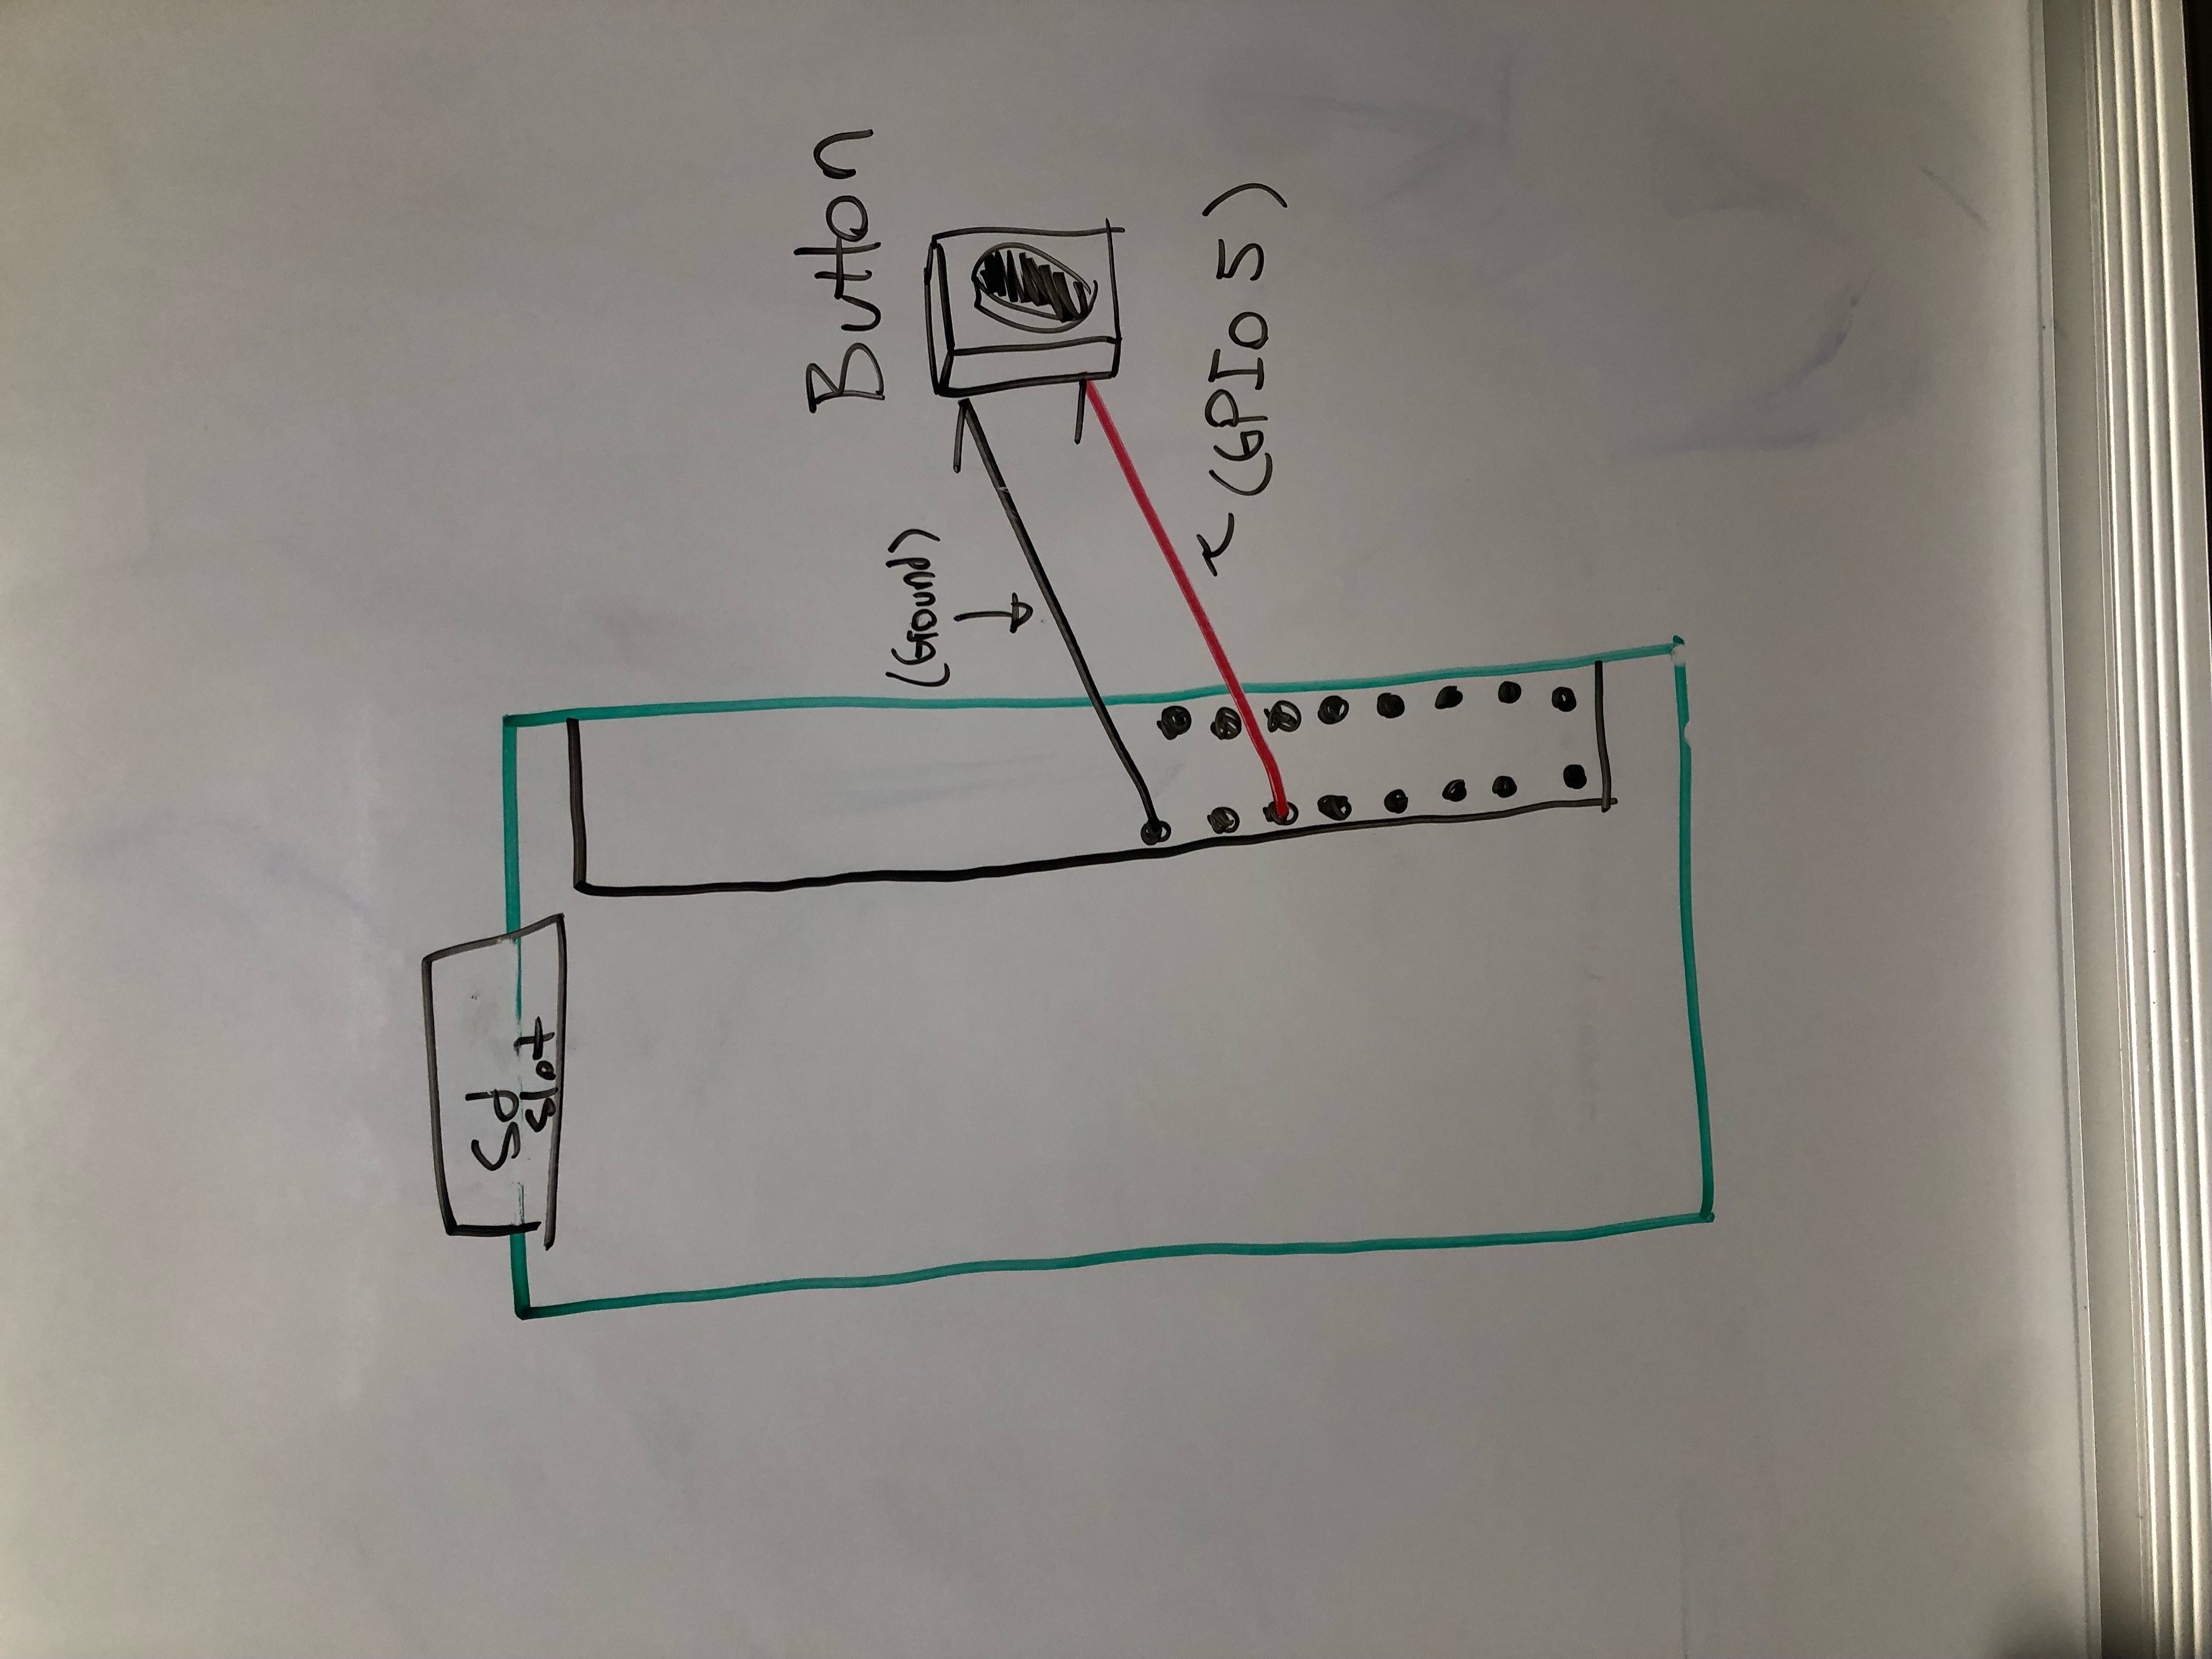 Sd
slot
Button
(Ground)
(GPIO 5)